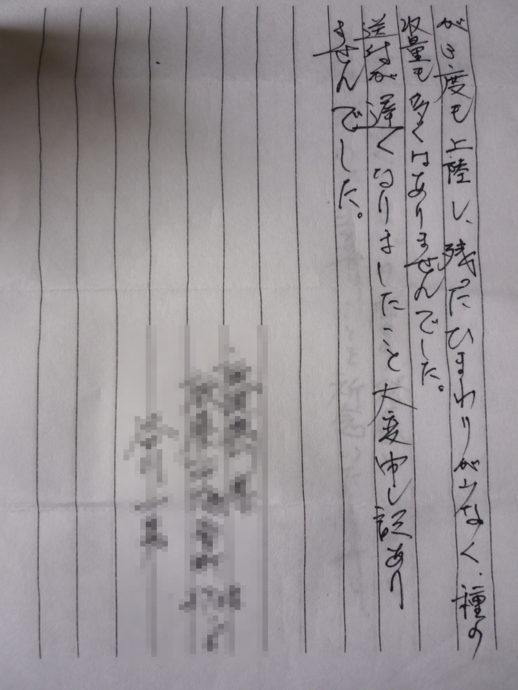 が3度も上陸し、残ったひまわりが少なく、種の
収量も多くはありませんでした。
送付が遅くなりましたこと大変申し訳あり
ませんでした。